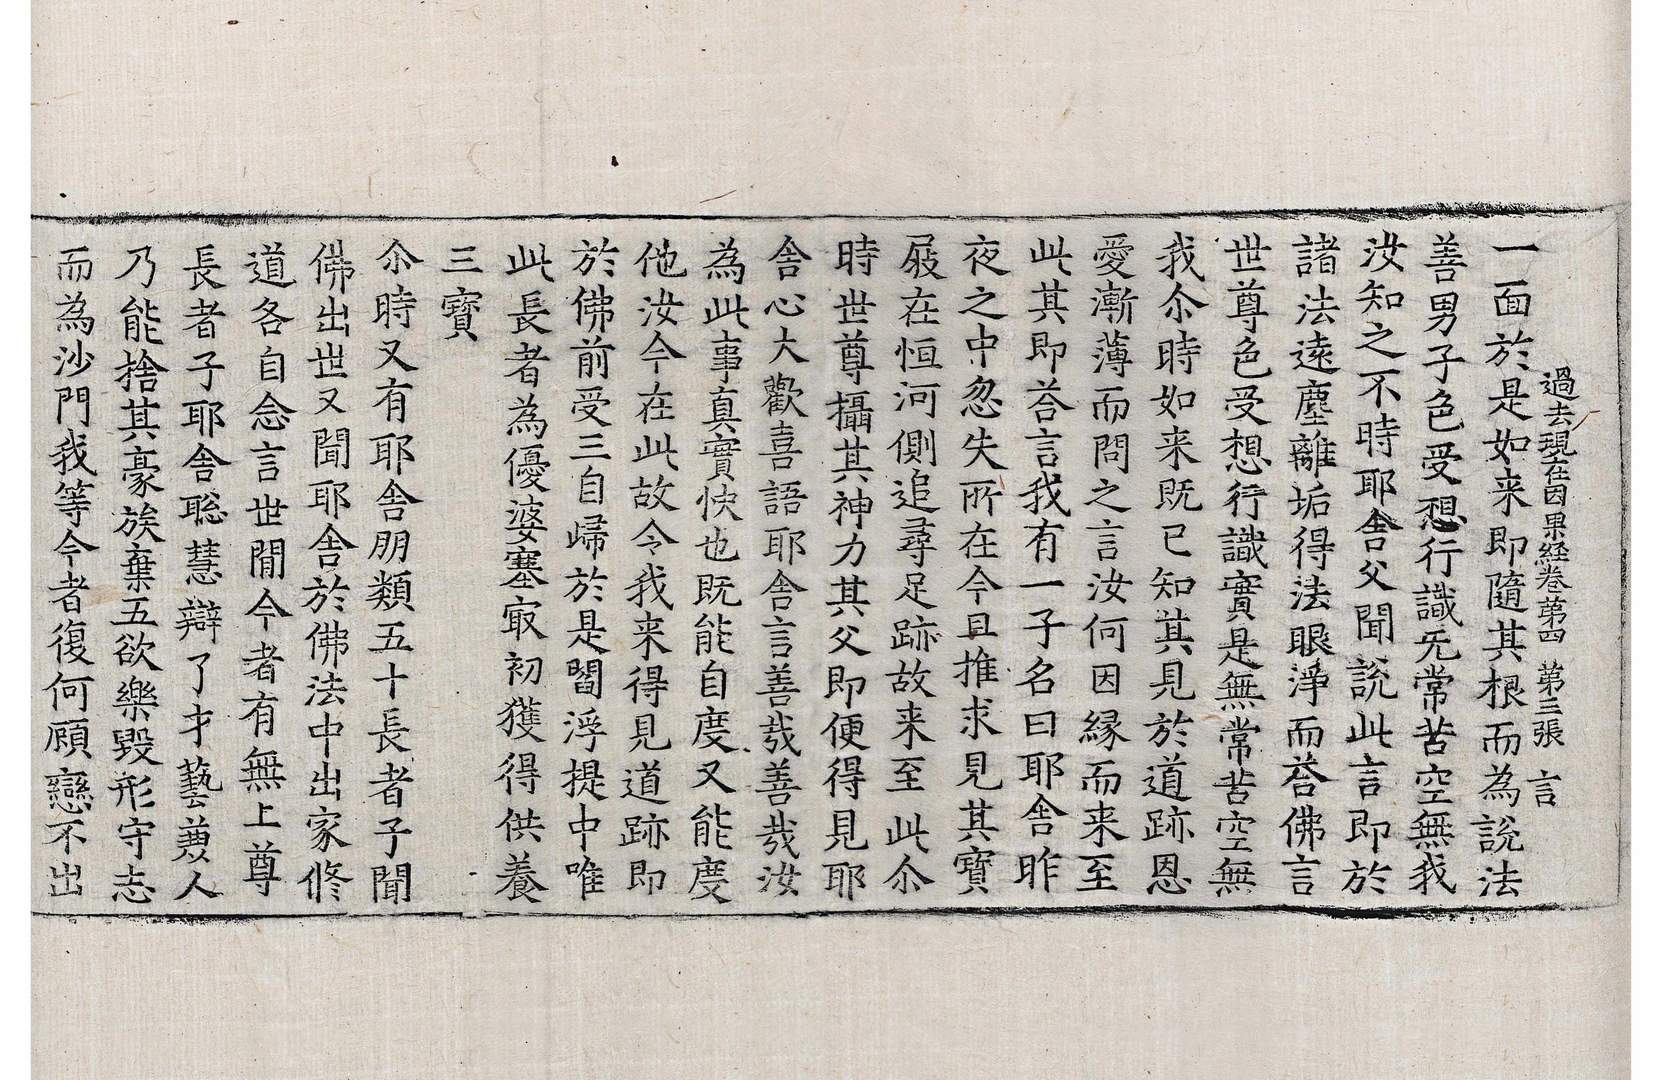 過去現在因果経卷第四 第三張 言
一面於是如来即隨其根而為說法
善男子色受想行識无常苦空無我
汝知之不時耶舍父聞說此言即於
諸法遠塵離垢得法眼淨而荅佛言
世尊色受想行識實是無常苦空無
我尒時如来既已知其見於道跡恩
愛漸薄而問之言汝何因緣而来至
此其即荅言我有一子名曰耶舍昨
夜之中忽失所在今旦推求見其寶
屐在恒河側追尋足跡故来至此尒
時世尊攝其神力其父即便得見耶
舍心大歡喜語耶舍言善哉善哉汝
為此事真實快也既能自度又能度
他汝今在此故令我来得見道跡即
於佛前受三自歸於是閻浮提中唯
此長者為優婆塞㝡初獲得供養
三寶
尒時又有耶舍朋類五十長者子聞
佛出世又聞耶舍於佛法中出家修
道各自念言世間今者有無上尊
長者子耶舍聡慧辯了才藝兼人
乃能捨其豪族棄五欲樂毀形守志
而為沙門我等今者復何顧戀不出